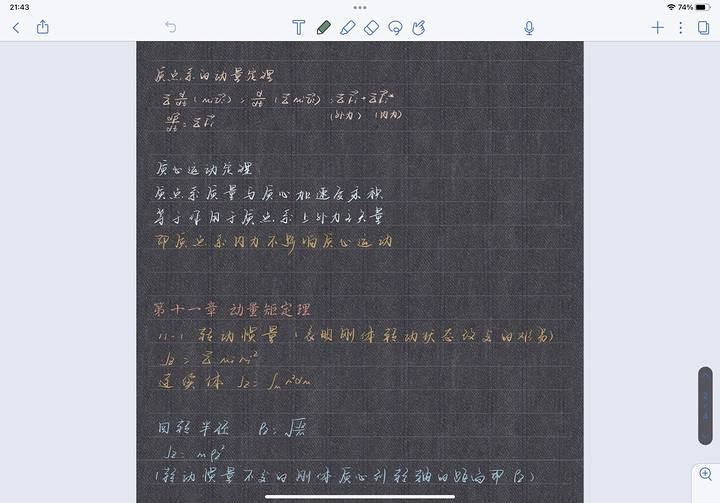 21:43
74%
质点系的动量定理
Σ d/dt (mᵢv⃗ᵢ) = d/dt (Σ mᵢv⃗ᵢ) = ΣF⃗ᵢ + ΣF⃗ᵢ*
(外力) (内力)
dp⃗/dt = ΣF⃗ᵢ
质心运动定理
质点系质量与质心加速度乘积
等于作用于质点系上外力主矢量
即质点系内力不影响质心运动
第十一章 动量矩定理
11-1 转动惯量 (表明刚体转动状态改变的难易)
Jz = Σ mᵢrᵢ²
连续体 Jz = ∫ₘ r²dm
回转半径
Jz = mρz²
(转动惯量不变的刚体质心到转轴的距离即 ρz)
2/4